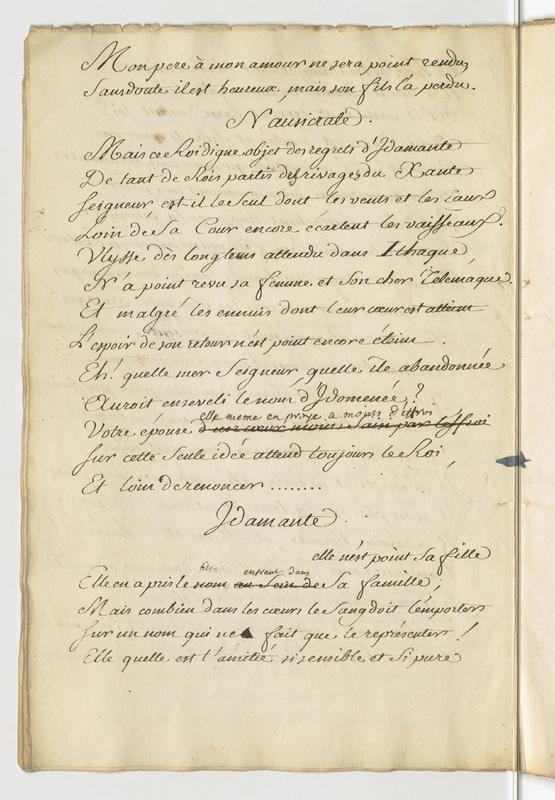 Mon pere à mon amour ne sera point rendu,
Sans doute il est heureux, mais son fils l'a perdu.
Nausicrate.
Mais ce Roi digne objet des regrets d'Idamante
De tant de Rois partis des rivages du Xante
Seigneur est-il le Seul dont les vents et les Eaux
Loin de Sa Cour encore écartent les vaisseaux.
Ulysse dès long tems attendu dans Ithaque,
N'a point revu sa femme et Son cher Telemaque.
Et malgré les ennuis dont leur cœur est atteint
L'espoir de son retour n'est point encore éteint.
Eh! quelle mer Seigneur, quelle île abandonnée
Auroit enseveli le nom d'Idomenée?
elle meme en proye a moins d'effroi
Votre épouse d'un cœur moins Saisi par l'effroi
Sur cette Seule idée attend toujours le Roi,
Et loin de renoncer ........
Idamante.
elle n'est point Sa fille
titre entrant dans
Elle en a pris le nom au Sein de Sa famille;
Mais combien dans les cœurs le Sang doit l'emporter
Sur un nom qui ne fait que le représenter!
Elle quelle est l'amitié si sensible et Si pure